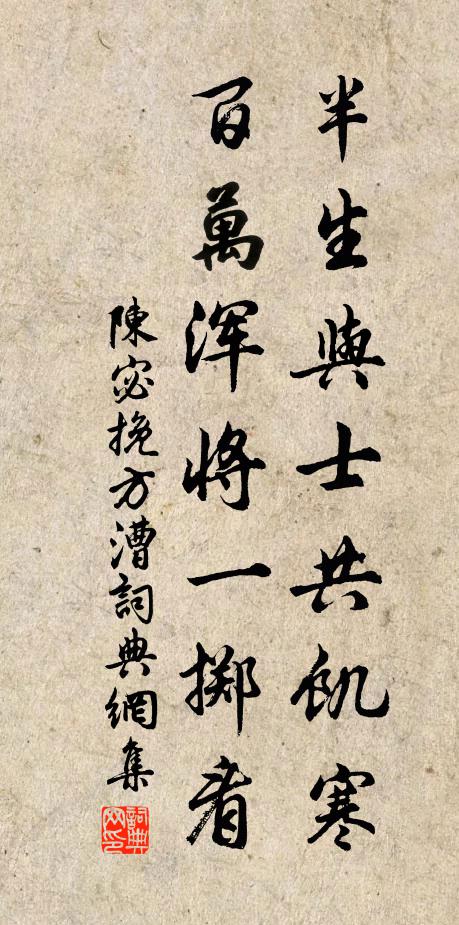 半生與士共飢寒
百萬渾將一擲看
陳宓挽方漕詞典網集
詞典网印